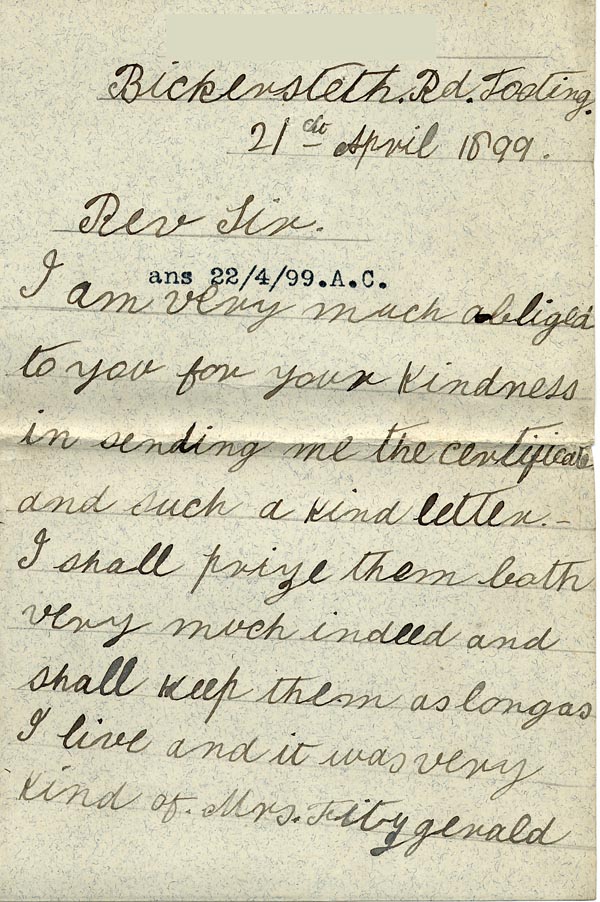 Bickersteth. Rd. Tooting.
21st April 1899.
Rev Sir.
ans 22/4/99.A.C.
I am very much obliged
to you for your kindness
in sending me the certificate
and such a kind letter.-
I shall prize them both
very much indeed and
shall keep them as long as
I live and it was very
kind of. Mrs. Fitzgerald